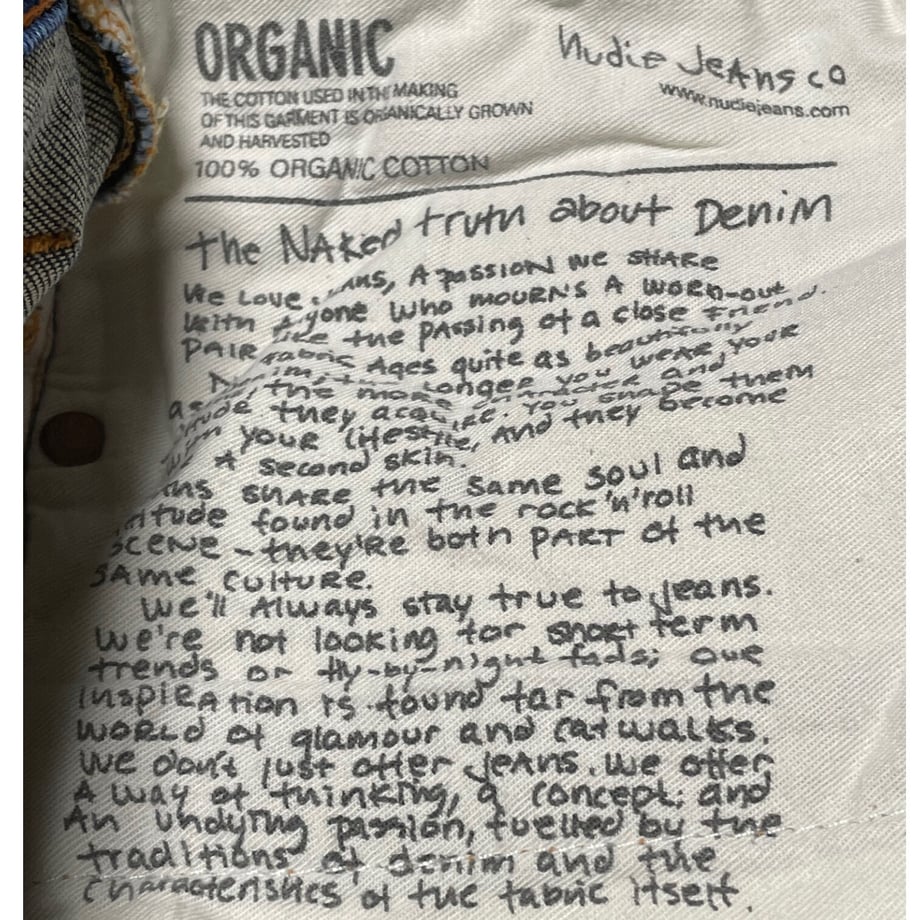 ORGANIC
THE COTTON USED IN THE MAKING
OF THIS GARMENT IS ORGANICALLY GROWN
AND HARVESTED
100% ORGANIC COTTON
Nudie Jeans co
www.nudiejeans.com
The Naked truth about Denim
We Love ans, A passion we share
with yone who mourns a worn-out
pair like the passing of a close friend.
fabric Ages quite as beautifully
the longer you wear your
the more character and
they acquire. You shape them
your lifestile, and they become
A second skin.
ans share the same soul and
tude found in the rock 'n' roll
scene - they're both part of the
same culture.
We'll always stay true to Jeans.
we're not looking for short term
trends or fly-by-night fads; our
inspiration is found far from the
world of glamour and catwalks.
We don't just offer Jeans. We offer
A way of thinking, a concept; and
An undying passion, fuelled by the
traditions of denim and the
characteristics of the fabric itself.